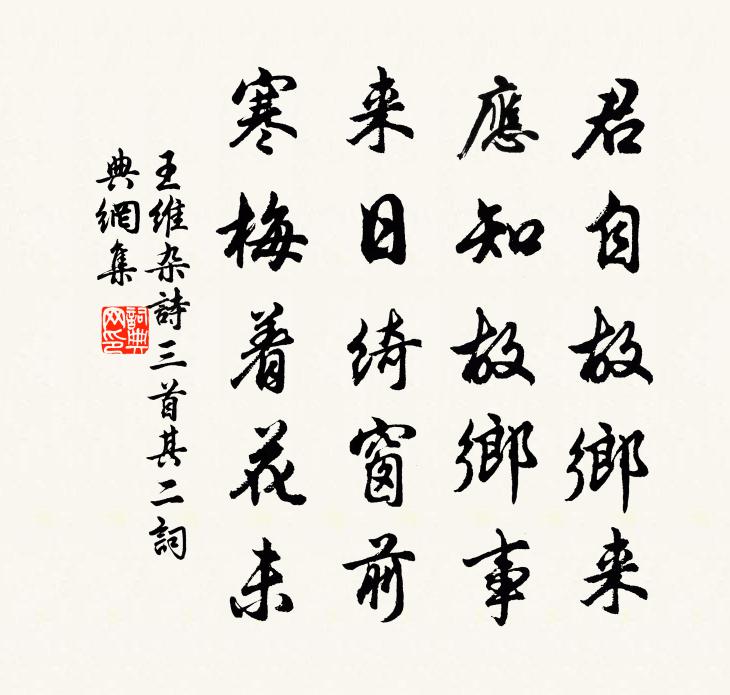 君自故鄉来
應知故鄉事
来日綺窗前
寒梅着花未
王維杂詩三首其二詞
典網集
詞典网印